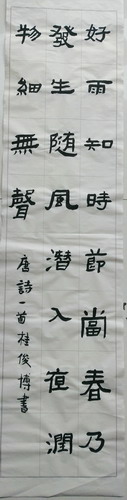 好雨知時節當春乃
發生隨風潛入夜潤
物細無聲
唐詩一首桂俊博書